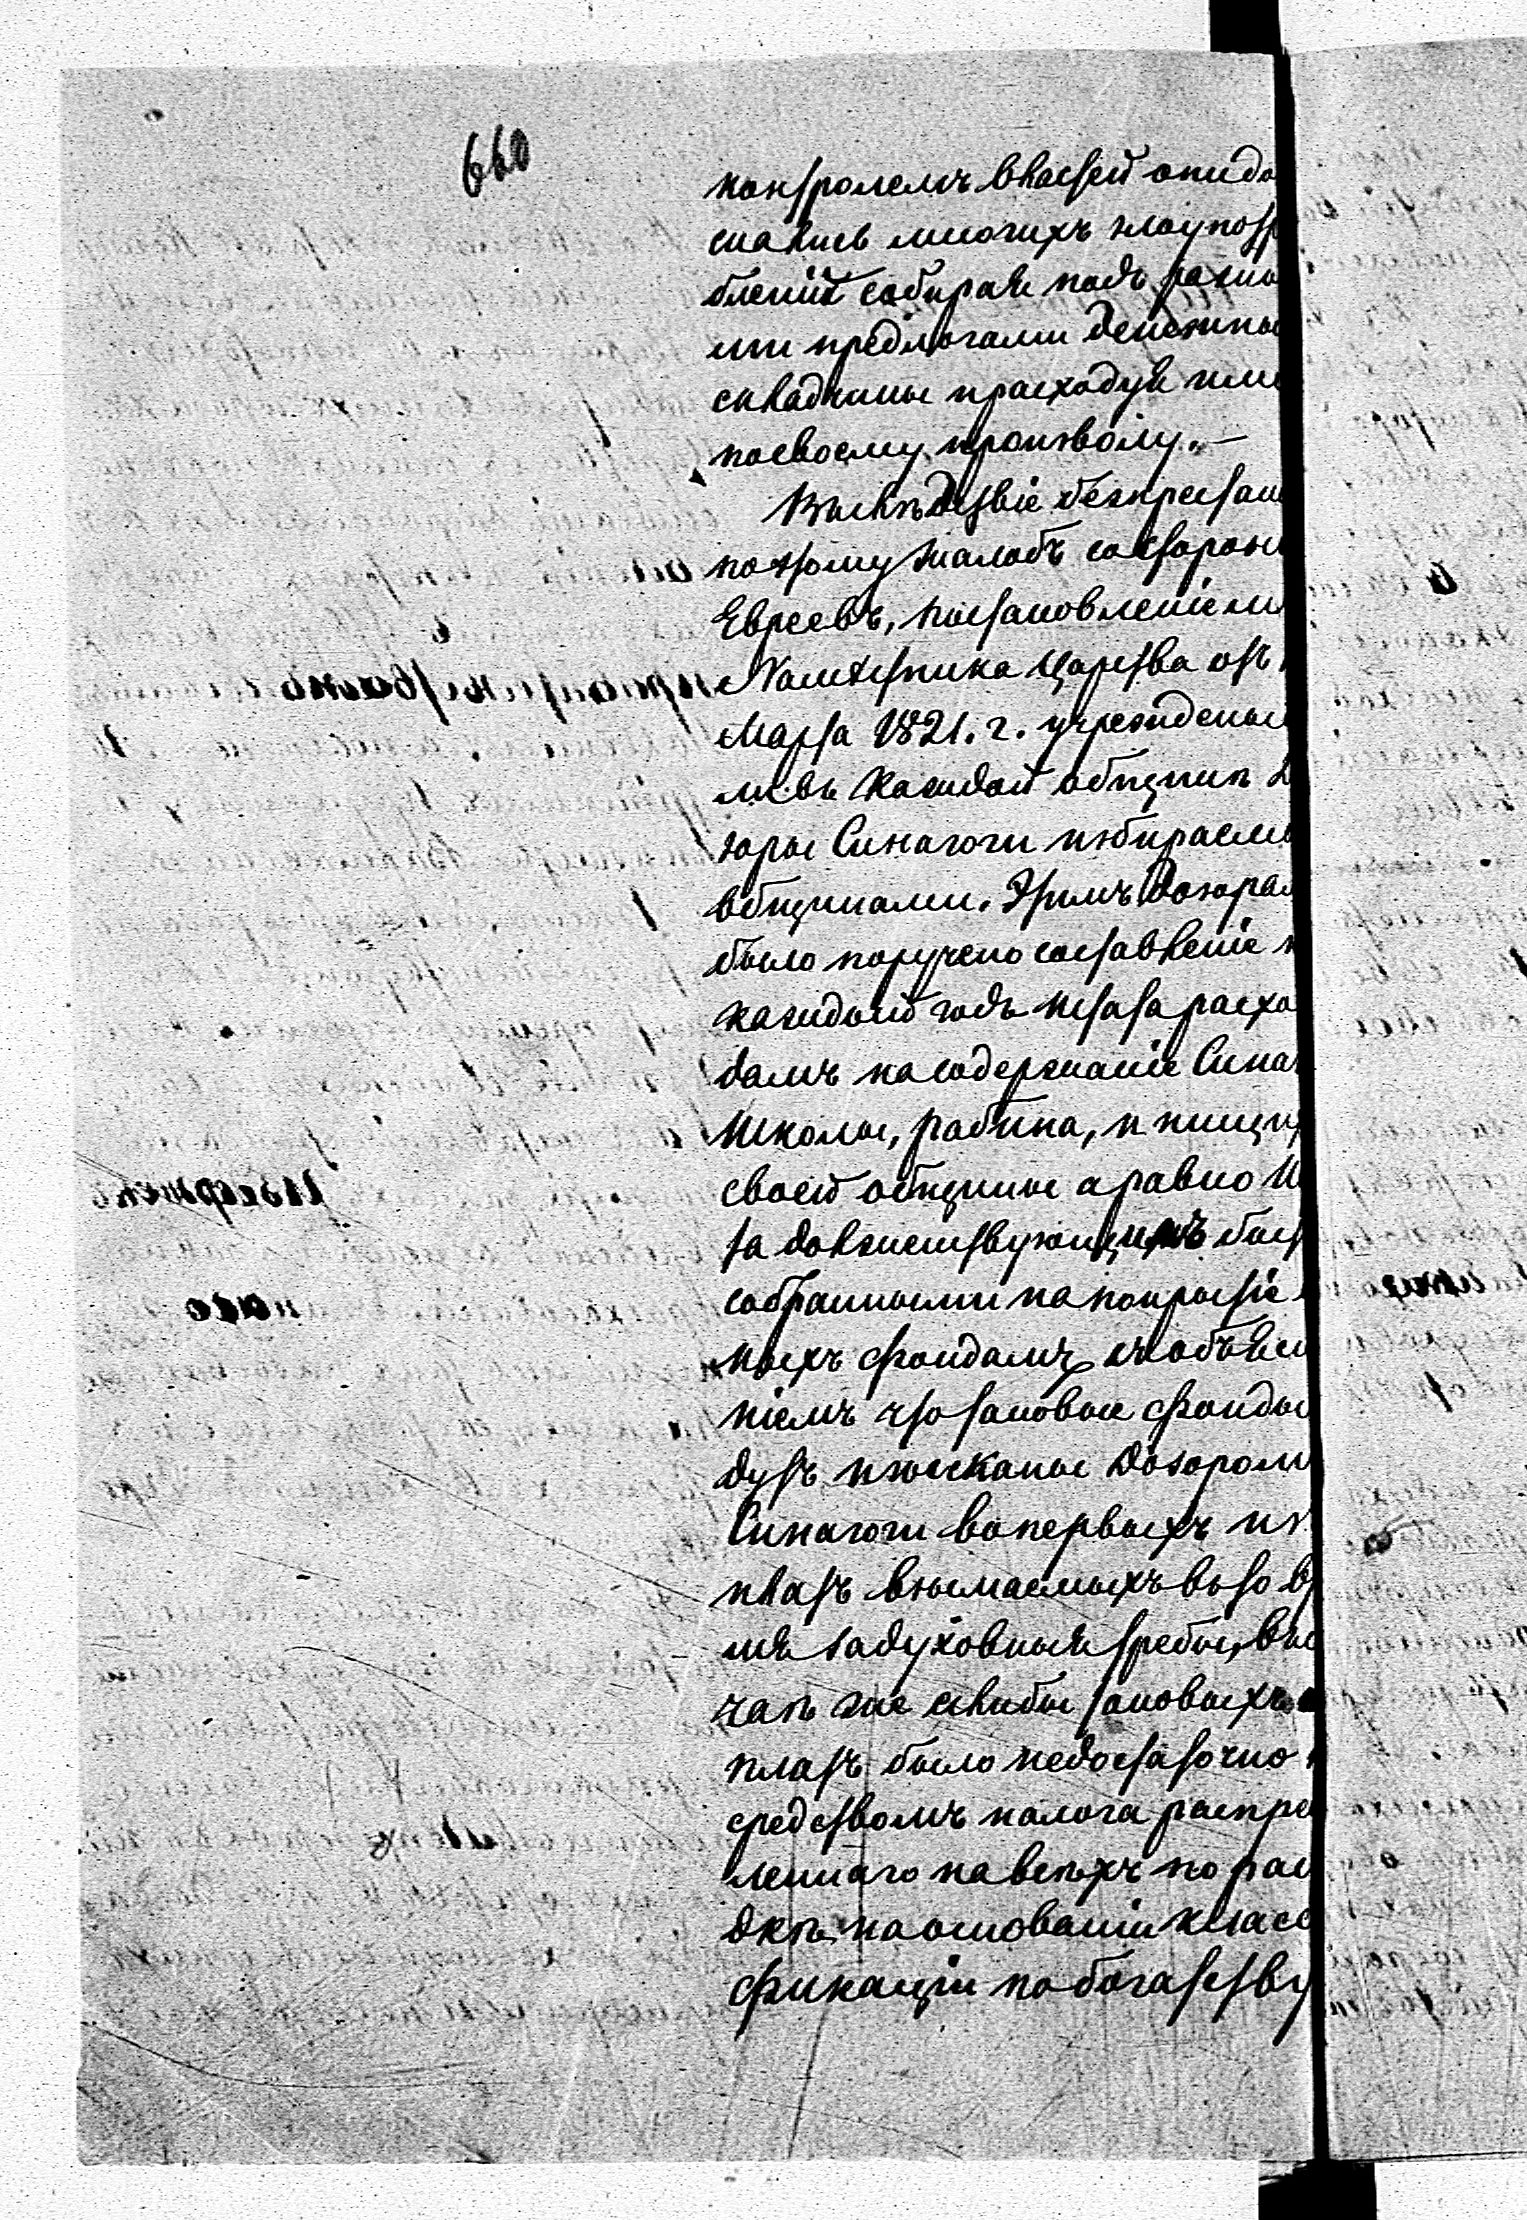 660
контролемъ властей они до
скались многихъ злоупотр
бленій собирая подъ разны
ми предлогами денежны
складчины и расходуя ими
посвоему произволу. —
Вслѣдствіе безпрестан
поэтому жалобъ состороны
Евреевъ, постановленіемъ
Намѣстника Царства отъ
Марта 1821. г. учреждены
ли въ каждой общинѣ До
зоры Синагоги избираемы
общинами. Этимъ дозорам
было поручено составленіе н
каждый годъ штата расхо
дамъ на содержаніе Синаг
школы, рабина, и нищих
своей общины а равно Ш
та долженствующимъ быт
собранными на покрытіе
ныхъ фондамъ съ объясне
ніемъ что таковые фонды
дутъ изысканы Дозоромъ
Синагоги вопервыхъ из
платъ взымаемыхъ въ то вр
мя за духовныя требы, въ слу
чаѣ же еслибы таковыхъ
платъ было недостаточно п
средствомъ налога распре
леннаго на всѣхъ по рас
дкѣ на основаніи класс
фикаціи по богатству